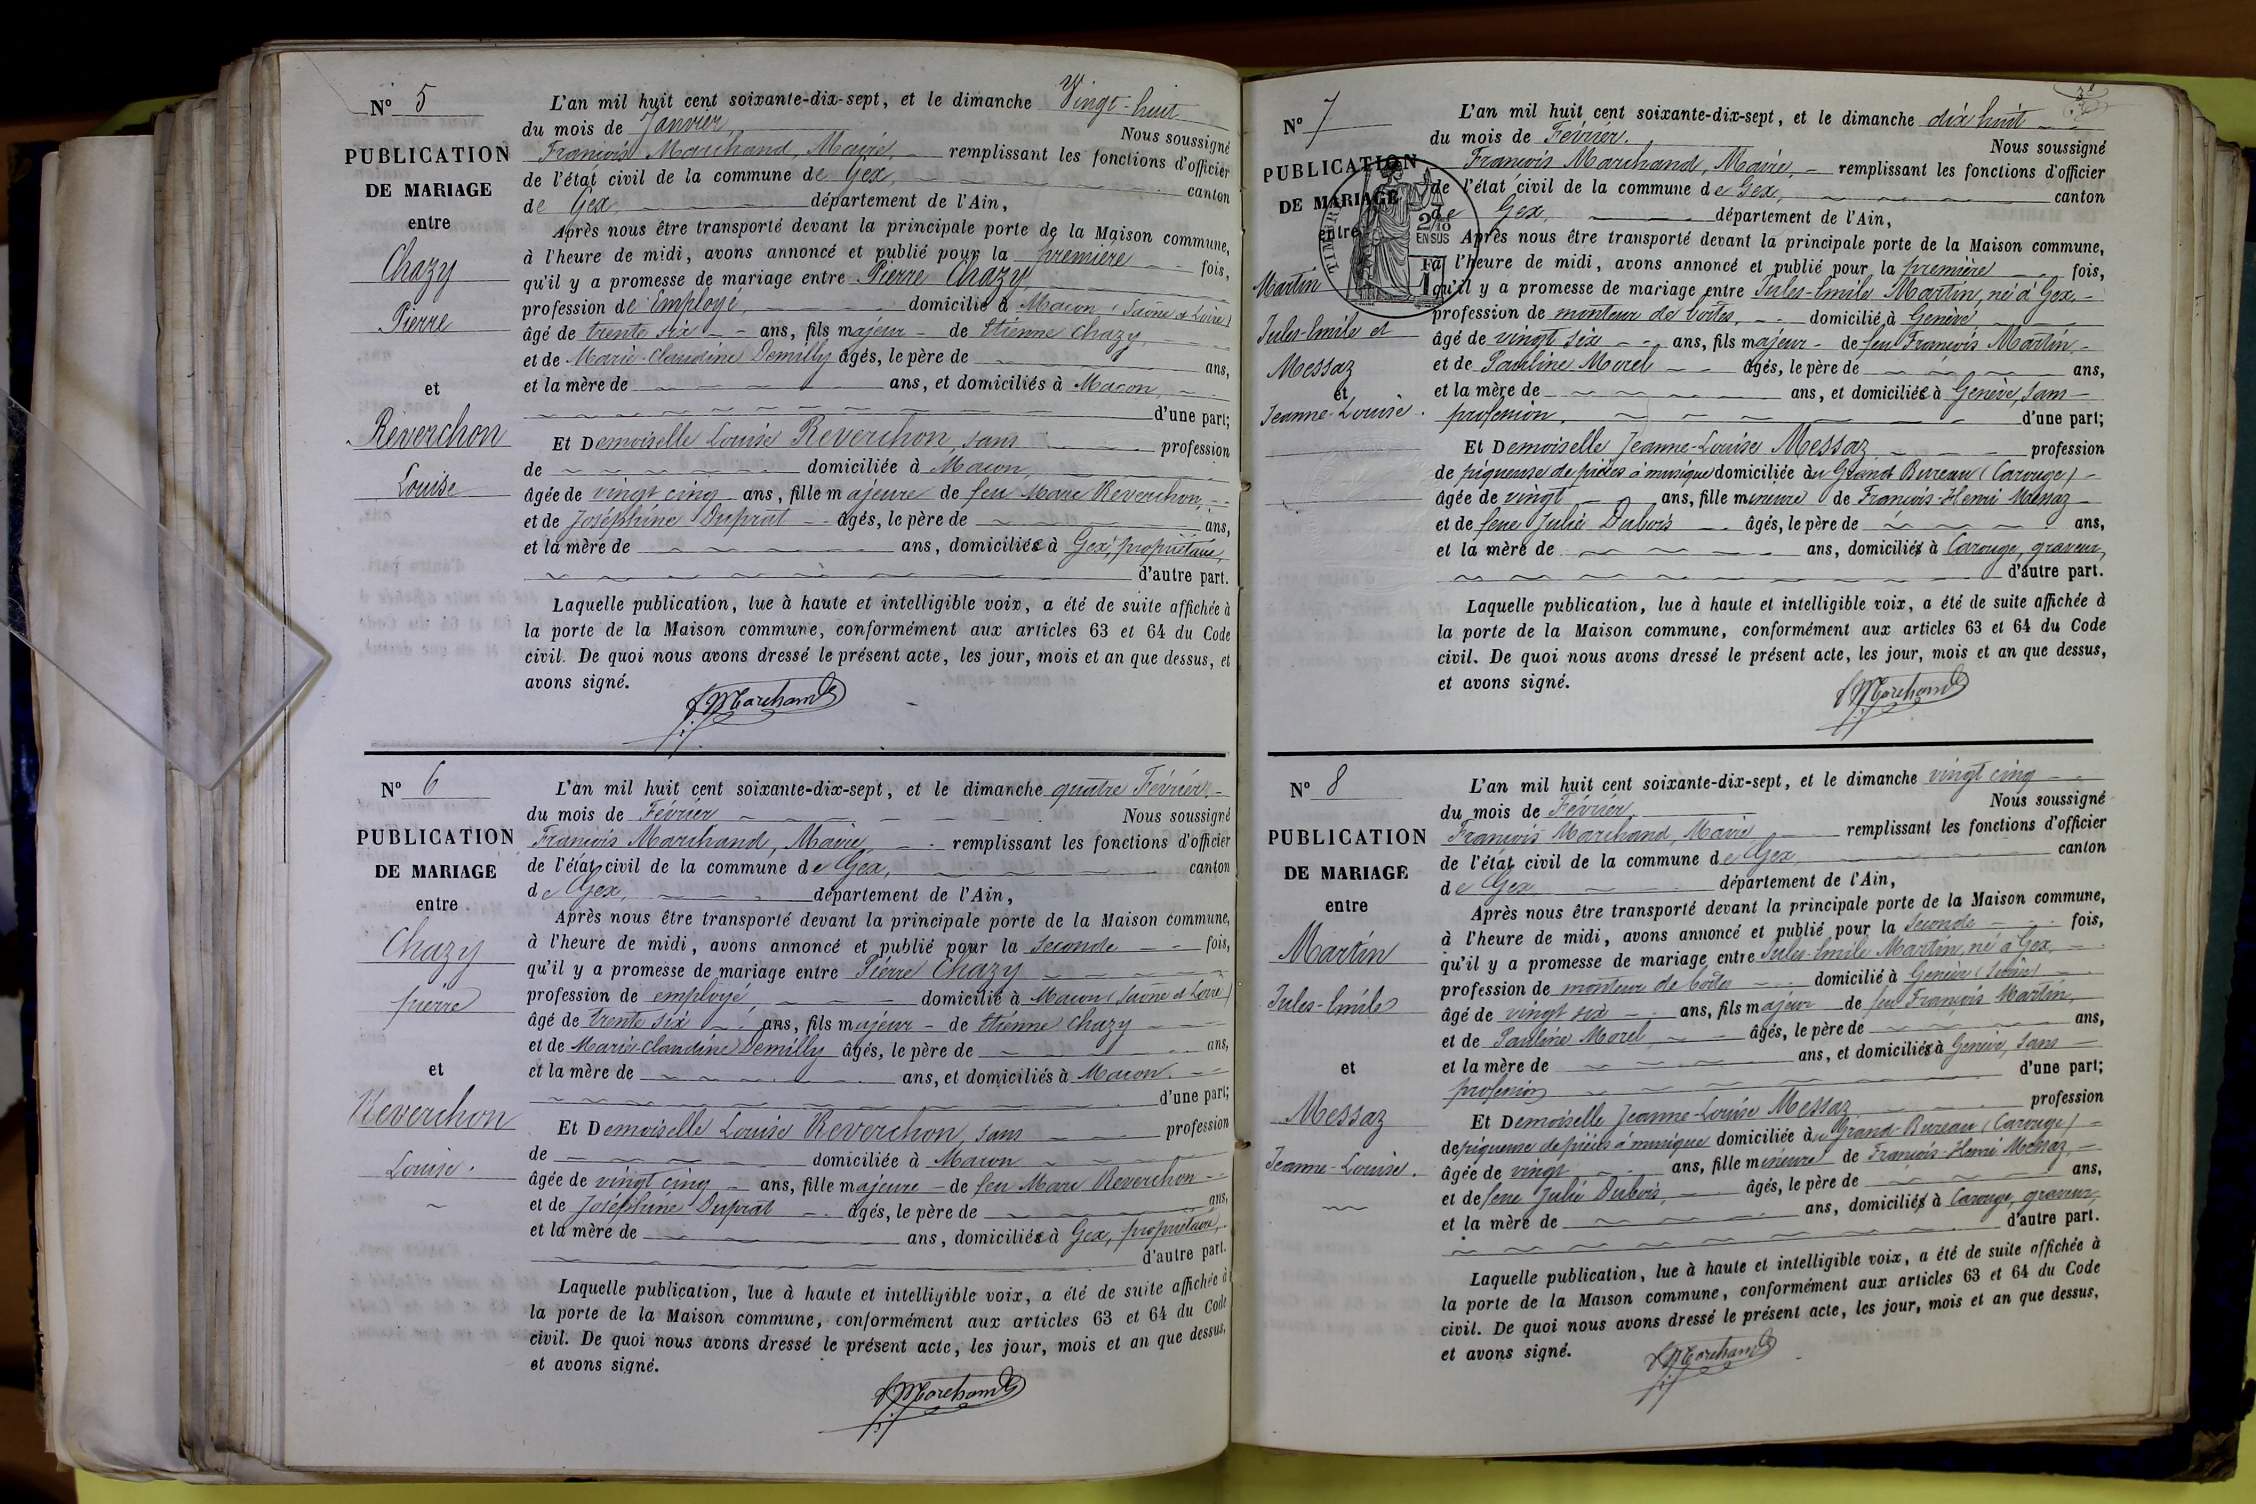 N° 5
PUBLICATION
DE MARIAGE
entre
Chazy
Pierre
et
Reverchon
Louise
L'an mil huit cent soixante-dix-sept, et le dimanche Vingt-huit
du mois de Janvier, Nous soussigné
François Marchand, Maire, remplissant les fonctions d'officier
de l'état civil de la commune de Gex, canton
de Gex, département de l'Ain,
Après nous être transporté devant la principale porte de la Maison commune,
à l'heure de midi, avons annoncé et publié pour la première fois,
qu'il y a promesse de mariage entre Pierre Chazy,
profession de Employé, domicilié à Macon, (Saône et Loire)
âgé de trente six ans, fils majeur de Etienne Chazy,
et de Marie-Claudine Demilly âgés, le père de ans,
et la mère de ans, et domiciliés à Macon,
d'une part;
Et Demoiselle Louise Reverchon, sans profession
de domiciliée à Macon,
âgée de vingt cinq ans, fille majeure de feu Marc Reverchon,
et de Joséphine Duprat âgés, le père de ans,
et la mère de ans, domiciliée à Gex, propriétaire,
d'autre part.
Laquelle publication, lue à haute et intelligible voix, a été de suite affichée à
la porte de la Maison commune, conformément aux articles 63 et 64 du Code
civil. De quoi nous avons dressé le présent acte, les jour, mois et an que dessus, et
avons signé.
F Marchand
N° 6
PUBLICATION
DE MARIAGE
entre
Chazy
pierre
et
Reverchon
Louise.
L'an mil huit cent soixante-dix-sept, et le dimanche quatre Février.
du mois de Février Nous soussigné
François Marchand, Maire, remplissant les fonctions d'officier
de l'état civil de la commune de Gex, canton
de Gex, département de l'Ain,
Après nous être transporté devant la principale porte de la Maison commune,
à l'heure de midi, avons annoncé et publié pour la seconde fois,
qu'il y a promesse de mariage entre Pierre Chazy
profession de employé domicilié à Macon (Saône et Loire)
âgé de trente six ans, fils majeur de Etienne Chazy
et de Marie-Claudine Demilly âgés, le père de ans,
et la mère de ans, et domiciliés à Macon.
d'une part;
Et Demoiselle Louise Reverchon, sans profession
de domiciliée à Macon
âgée de vingt cinq ans, fille majeure de feu Marc Reverchon
et de Joséphine Duprat âgés, le père de ans,
et la mère de ans, domiciliée à Gex, propriétaire,
d'autre part.
Laquelle publication, lue à haute et intelligible voix, a été de suite affichée à
la porte de la Maison commune, conformément aux articles 63 et 64 du Code
civil. De quoi nous avons dressé le présent acte, les jour, mois et an que dessus,
et avons signé.
F Marchand
N° 7
PUBLICATION
DE MARIAGE
entre
Martin
Jules-Emile et
Messaz
et
Jeanne-Louise.
TIMBR
2/10
EN SUS
1
L'an mil huit cent soixante-dix-sept, et le dimanche dix huit
du mois de Février. Nous soussigné
François Marchand, Maire, remplissant les fonctions d'officier
de l'état civil de la commune de Gex, canton
de Gex, département de l'Ain,
Après nous être transporté devant la principale porte de la Maison commune,
à l'heure de midi, avons annoncé et publié pour la première fois,
qu'il y a promesse de mariage entre Jules-Emile Martin, né à Gex,
profession de monteur de boîtes, domicilié à Genève
âgé de vingt six ans, fils majeur de feu François Martin,
et de Pauline Morel âgés, le père de ans,
et la mère de ans, et domiciliée à Genève, sans
profession, d'une part;
Et Demoiselle Jeanne-Louise Messaz profession
de piqueuse de pièces à musique domiciliée au Grand Bureau (Carouge)
âgée de vingt ans, fille mineure de François-Henri Messaz
et de feue Julie Dubois âgés, le père de ans,
et la mère de ans, domicilié à Carouge, graveur,
d'autre part.
Laquelle publication, lue à haute et intelligible voix, a été de suite affichée à
la porte de la Maison commune, conformément aux articles 63 et 64 du Code
civil. De quoi nous avons dressé le présent acte, les jour, mois et an que dessus,
et avons signé.
F Marchand
N° 8
PUBLICATION
DE MARIAGE
entre
Martin
Jules-Emile
et
Messaz
Jeanne-Louise.
L'an mil huit cent soixante-dix-sept, et le dimanche vingt cinq
du mois de Février. Nous soussigné
François Marchand, Maire remplissant les fonctions d'officier
de l'état civil de la commune de Gex, canton
de Gex département de l'Ain,
Après nous être transporté devant la principale porte de la Maison commune,
à l'heure de midi, avons annoncé et publié pour la seconde fois,
qu'il y a promesse de mariage entre Jules-Emile Martin, né à Gex,
profession de monteur de boîtes domicilié à Genève (Suisse)
âgé de vingt six ans, fils majeur de feu François Martin,
et de Pauline Morel, âgés, le père de ans,
et la mère de ans, et domiciliée à Genève, sans
profession d'une part;
Et Demoiselle Jeanne-Louise Messaz profession
de piqueuse de pièces à musique domiciliée au Grand-Bureau (Carouge)
âgée de vingt ans, fille mineure de François-Henri Messaz
et de feue Julie Dubois, âgés, le père de ans,
et la mère de ans, domicilié à Carouge, graveur,
d'autre part.
Laquelle publication, lue à haute et intelligible voix, a été de suite affichée à
la porte de la Maison commune, conformément aux articles 63 et 64 du Code
civil. De quoi nous avons dressé le présent acte, les jour, mois et an que dessus,
et avons signé.
F Marchand